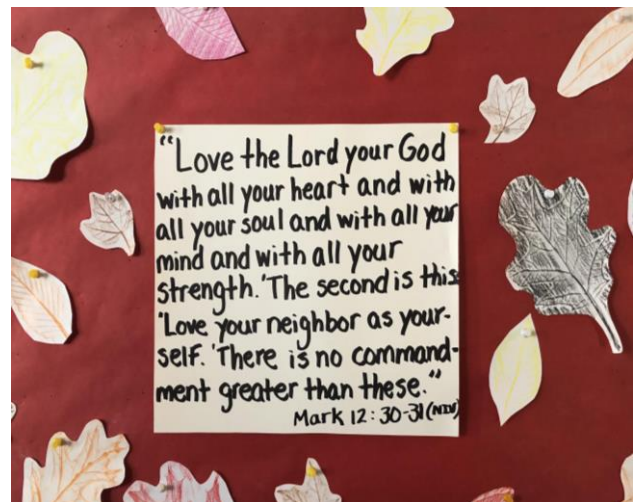 “Love the Lord your God
with all your heart and with
all your soul and with all your
mind and with all your
strength.' The second is this:
'Love your neighbor as your-
self.' There is no command-
ment greater than these.”
Mark 12:30-31 (NIV)